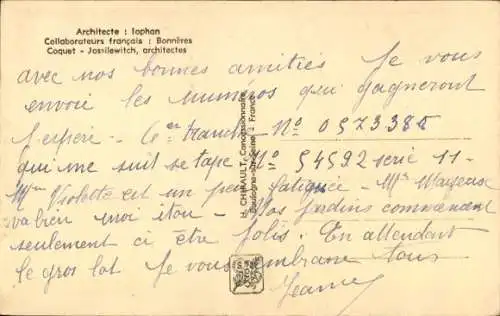 Architecte : Iophan
Collaborateurs français : Bonnères
Coquet - Jossilewitch, architectes
avec nos bonnes amitiés Je vous
envoi les numéros qui gagneront
J'espère - 6e tranche - No 0573385
qui me suit se tape No 54592 serie 11 -
Mme Violette est un peu fatiguée - Mr
va bien moi itou - Vos jardins commencent
seulement ci être jolis. En attendant
le gros lot Je vous embrasse tous
Jeanne
H. CHIPAULT, Concessionnaire
Boulogne-sur-Seine - France